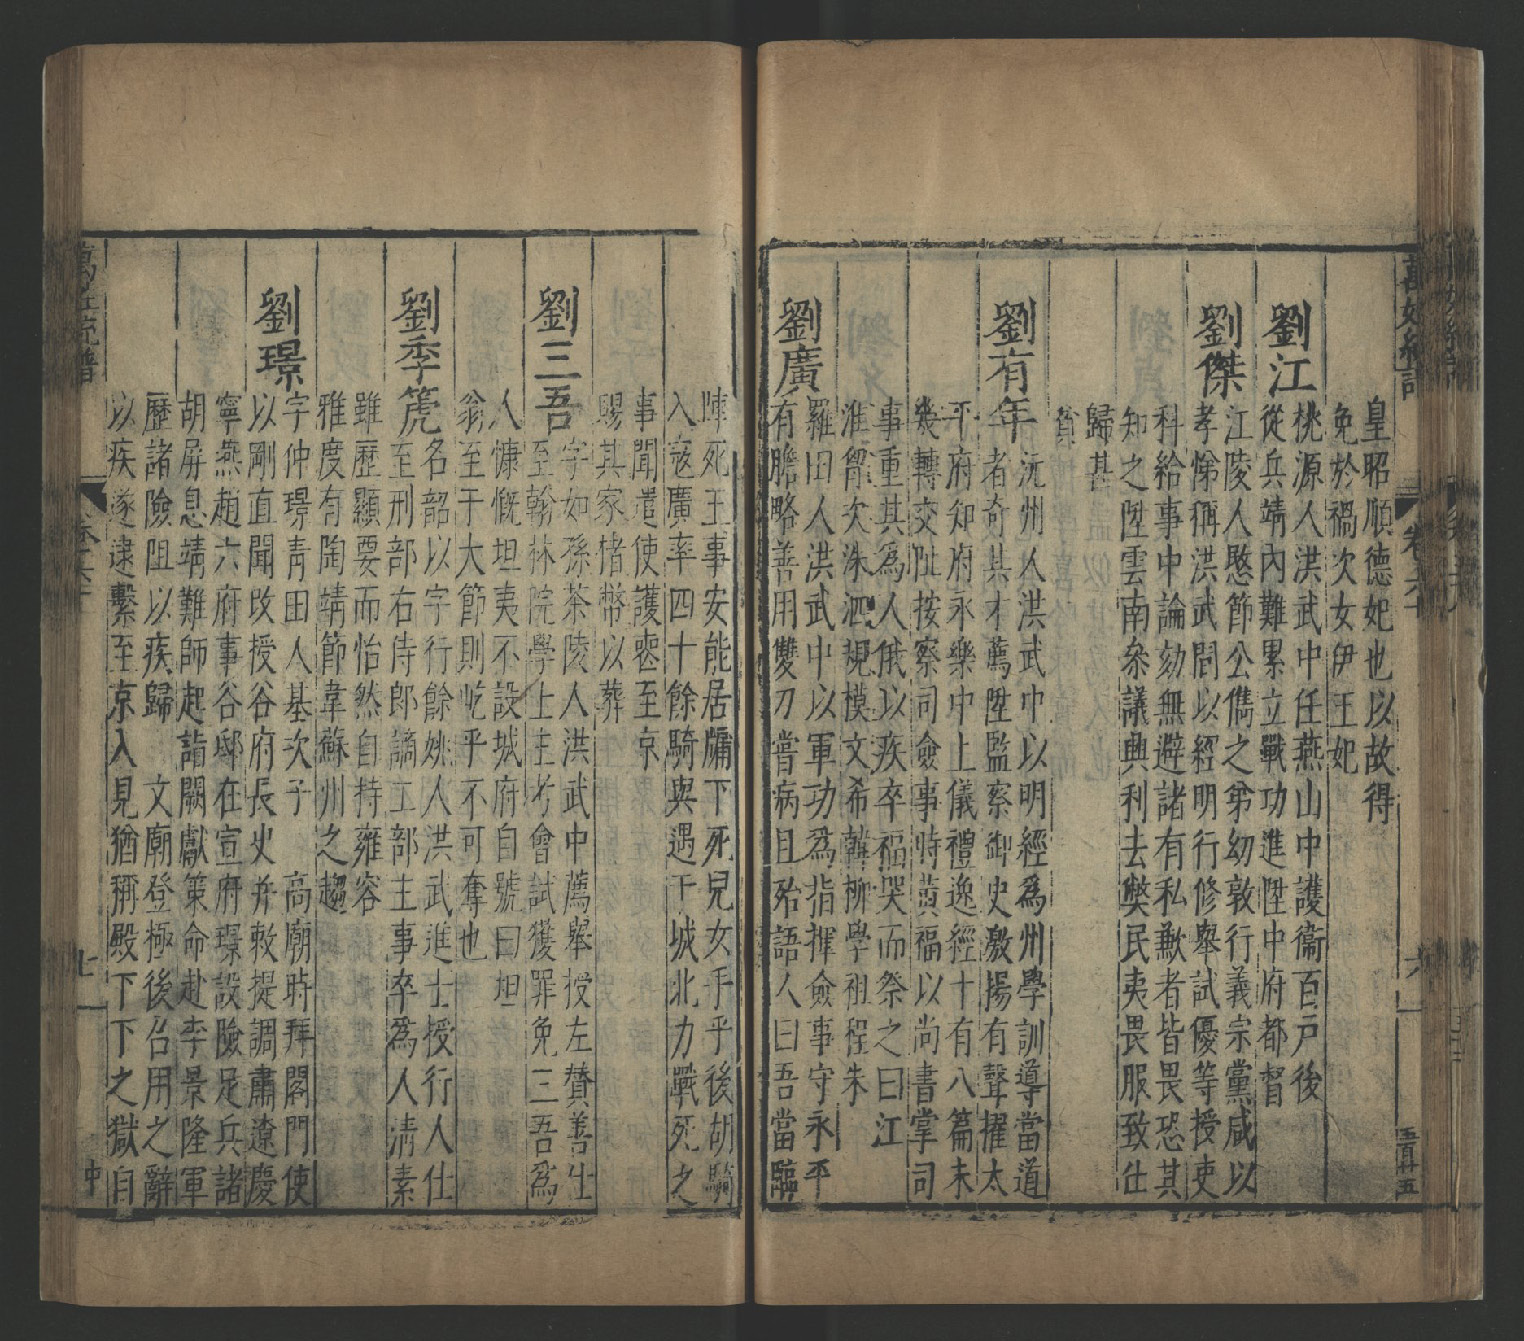 萬姓統譜
卷六十
六
五百廿五
皇昭順德妃也以故得
免於禍次女伊王妃
劉江
桃源人洪武中任燕山中護衞百戸後
從兵靖內難累立戰功進陞中府都督
劉傑
江陵人愍節公儁之弟幼敦行義宗黨咸以
孝悌稱洪武間以經明行修舉試優等授吏
科給事中論劾無避諸有私歉者皆畏恐其
知之陞雲南叅議興利去弊民夷畏服致仕
歸甚
貧
劉有年
沅州人洪武中以明經爲州學訓導當道
者奇其才薦陞監察御史激揚有聲擢太
平府知府永樂中上儀禮逸經十有八篇未
幾轉交阯按察司僉事時黄福以尚書掌司
事重其爲人俄以疾卒福哭而祭之曰江
淮胷次洙泗規模文希韓柳學祖程朱
劉廣
羅田人洪武中以軍功爲指揮僉事守永平
有膽略善用雙刀嘗病且殆語人曰吾當臨
陣死王事安能居牖下死兒女手乎後胡騎
入宼廣率四十餘騎與遇于城北力戰死之
事聞遣使護喪至京
賜其家楮幣以葬
劉三吾
字如孫茶陵人洪武中薦舉授左贊善仕
至翰林院學士主考會試獲罪免三吾爲
人慷慨坦夷不設城府自號曰坦
翁至于大節則屹乎不可奪也
劉季箎
名韶以字行餘姚人洪武進士授行人仕
至刑部右侍郎謫工部主事卒爲人清素
雖歷顯要而怡然自持雍容
雅度有陶靖節韋蘇州之趣
劉璟
字仲璟青田人基次子　高廟時拜閣門使
以剛直聞改授谷府長史并敕提調肅遼慶
寧燕趙六府事谷邸在宣府璟設險足兵諸
胡屏息靖難師起詣闕獻策命赴李景隆軍
歷諸險阻以疾歸　文廟登極後召用之辭
以疾遂逮繫至京入見猶稱殿下下之獄自
萬姓統譜
卷六十
七